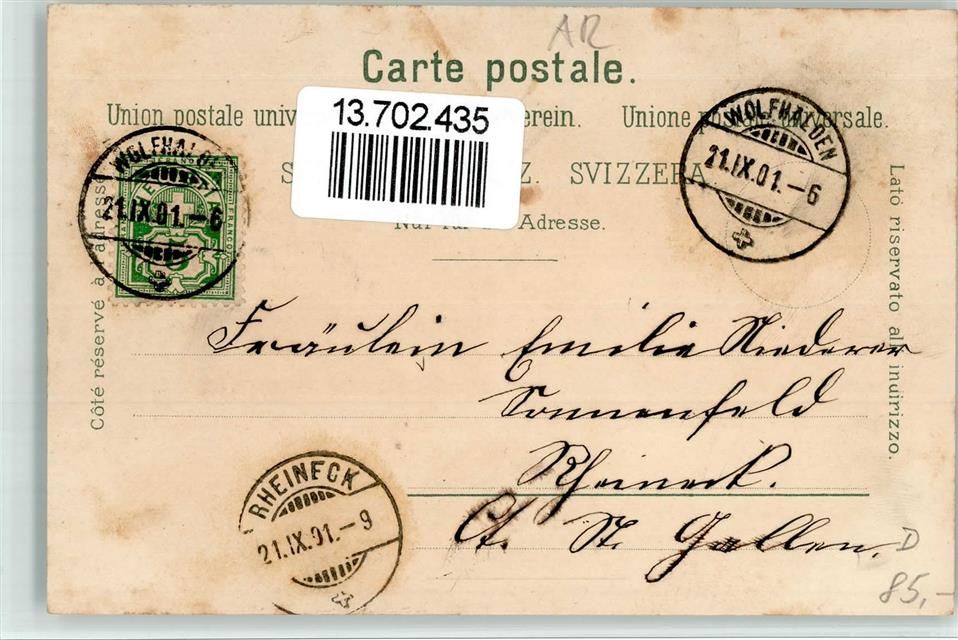 AR
Carte postale.
Union postale univ erein. Unione postale universale.
13.702.435
S Z. SVIZZERA
Nur für die Adresse.
Côté réservé à l'adresse.
Lato riservato all'indirizzo.
WOLFHALDEN
21.IX.01.-6
WOLFHALDEN
21.IX.01.-6
FRANCO
5
Fräulein Emilie Niederer
Sonnenfeld
Rheineck.
Ct. St. Gallen.
RHEINECK
21.IX.01.-9
D
85,-